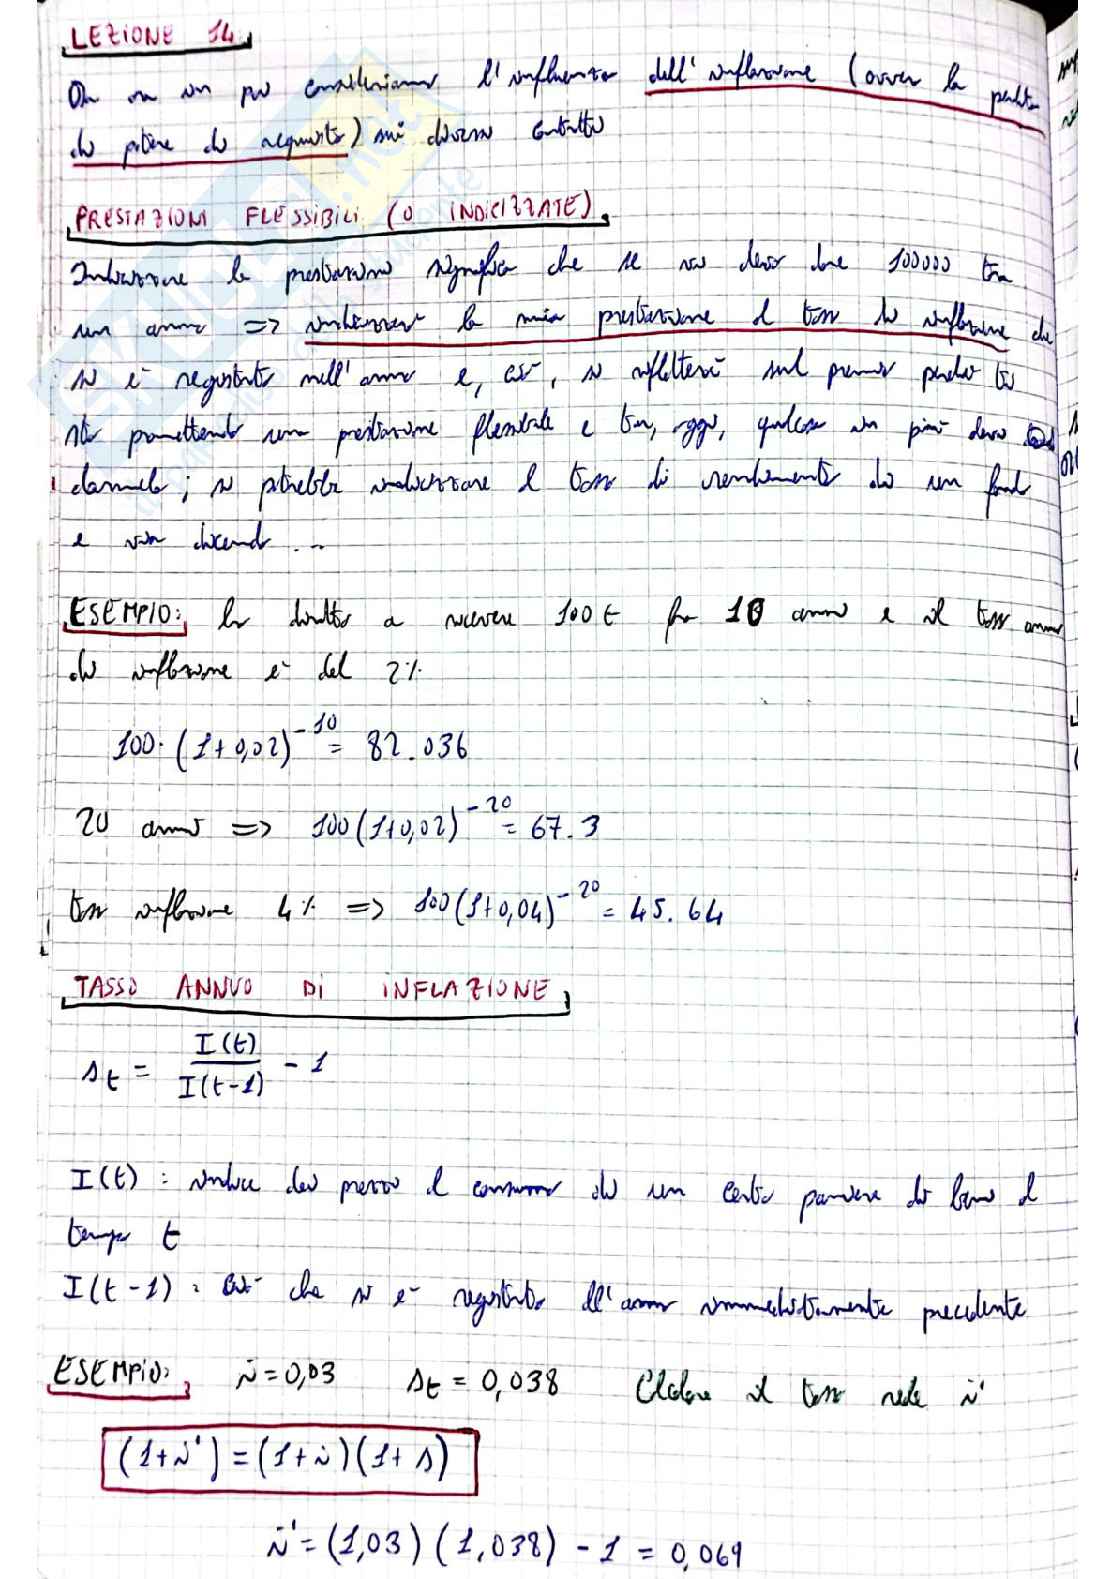 LEZIONE 14
Ora un po' consideriamo l'influenza dell'inflazione (ovvero la perdita
di potere di acquisto) sui diversi contratti
PRESTAZIONI FLESSIBILI (O INDICIZZATE)
Indicizzare la prestazione significa che se devo dare 100000 tra
un anno => indicizzare la mia prestazione al tasso di inflazione che
si è registrato nell'anno e, ciò, si rifletterà sul premio perché ti
sto promettendo una prestazione flessibile e tu, oggi, qualcosa in più devi
darmelo; si potrebbe indicizzare al tasso di rendimento di un fondo
e via dicendo...
ESEMPIO: ho diritto a ricevere 100 € fra 10 anni e il tasso annuo
di inflazione è del 2%
100·(1+0,02)^-10 = 82.036
20 anni => 100(1+0,02)^-20 = 67.3
tasso inflazione 4% => 100(1+0,04)^-20 = 45.64
TASSO ANNUO DI INFLAZIONE
s_t = I(t)/I(t-1) - 1
I(t) : indice dei prezzi al consumo di un certo paniere di beni al
tempo t
I(t-1) : ciò che si è registrato all'anno immediatamente precedente
ESEMPIO: i=0,03 s_t = 0,038 Calcolare il tasso reale i'
(1+i') = (1+i)(1+s)
i' = (1,03)(1,038) - 1 = 0,069